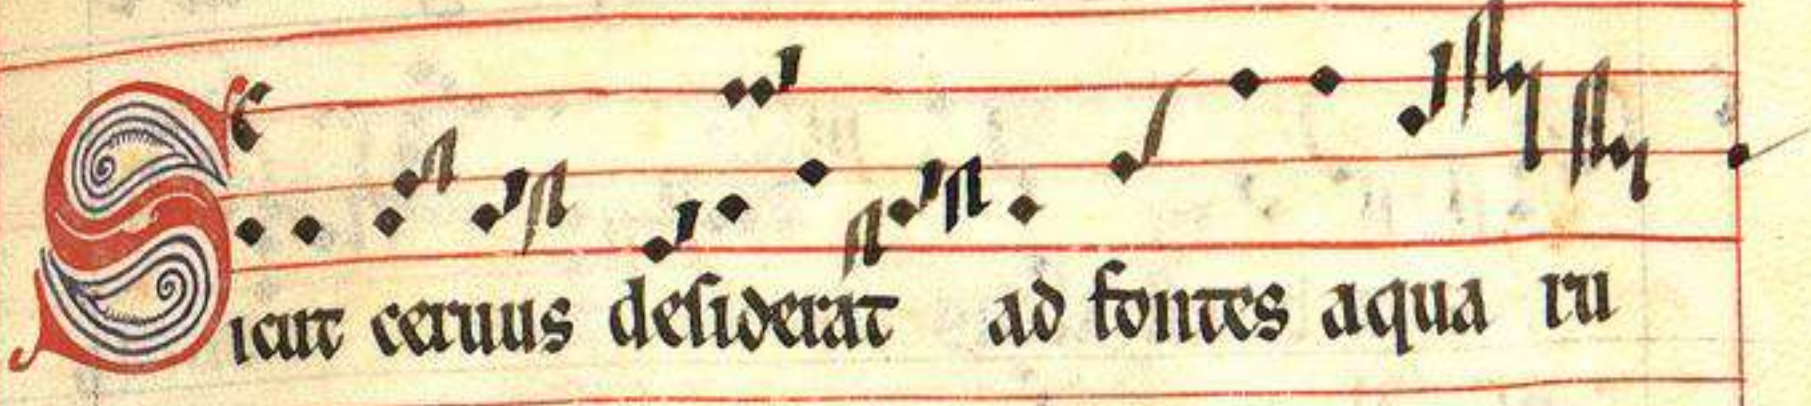 Sicut ceruus desiderat ad fontes aqua ru